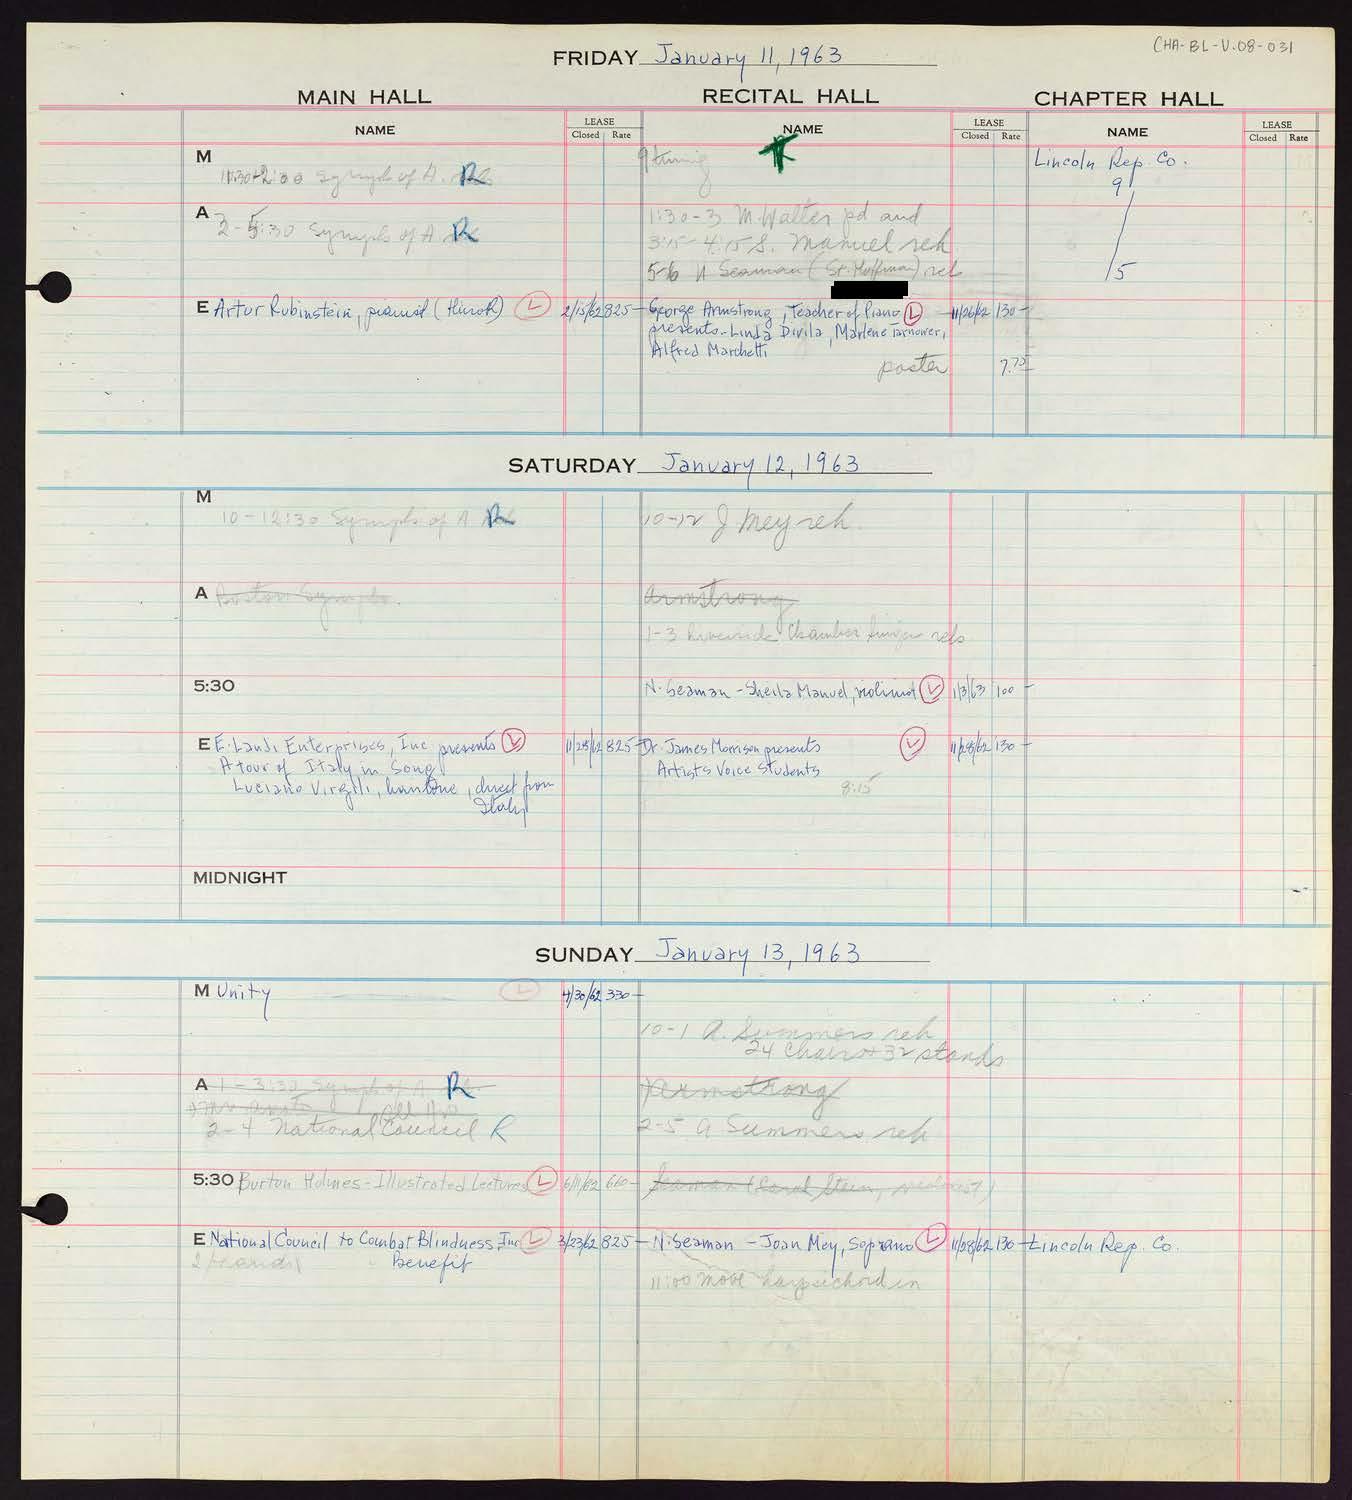 CHA-BL-V.08-031
FRIDAY January 11, 1963
MAIN HALL RECITAL HALL CHAPTER HALL
NAME LEASE NAME LEASE NAME LEASE
Closed Rate Closed Rate Closed Rate
M
11:30-2:00 Symph of A. R
9 tuning
Lincoln Rep. Co.
9
5
A 2-5:30 Symph of A R
1:30-3 M. Walter pd and
3:15-4:15 S. Manuel reh
5-6 N Seaman (St. Hoffman) reh
E Artur Rubinstein, pianist (Hurok) L 2/15/62 825-
George Armstrong, Teacher of Piano L 11/26/62 130-
presents-Linda Divila, Marlene Tarnower,
Alfred Marchetti
poster 7.75
SATURDAY January 12, 1963
M
10-12:30 Symph of A R
10-12 J Mey reh.
A Boston Symph.
Armstrong
1-3 Riverside Chamber Singer reh
5:30 N. Seaman - Sheila Manuel, violinist L 1/3/63 100-
E E. Landi Enterprises, Inc presents L 11/28/62 825-
A tour of Italy in Song
Luciano Virgili, baritone, direct from
Italy
Dr. James Morrison presents L 11/28/62 130-
Artists Voice Students
8:15
MIDNIGHT
SUNDAY January 13, 1963
M Unity L 4/30/62 330-
10-1 A. Summers reh
24 Chairs + 32 stands
A 1-3:30 Symph of A R
2-4 National Council R
Armstrong
2-5 A Summers reh
5:30 Burton Holmes-Illustrated Lectures L 6/11/62 660-
Seaman (Carol Stein, violinist)
E National Council to Combat Blindness, Inc L 3/23/62 825-
Benefit
N. Seaman - Joan Mey, Soprano L 11/28/62 130-
11:00 move harpsichord in
Lincoln Rep. Co.